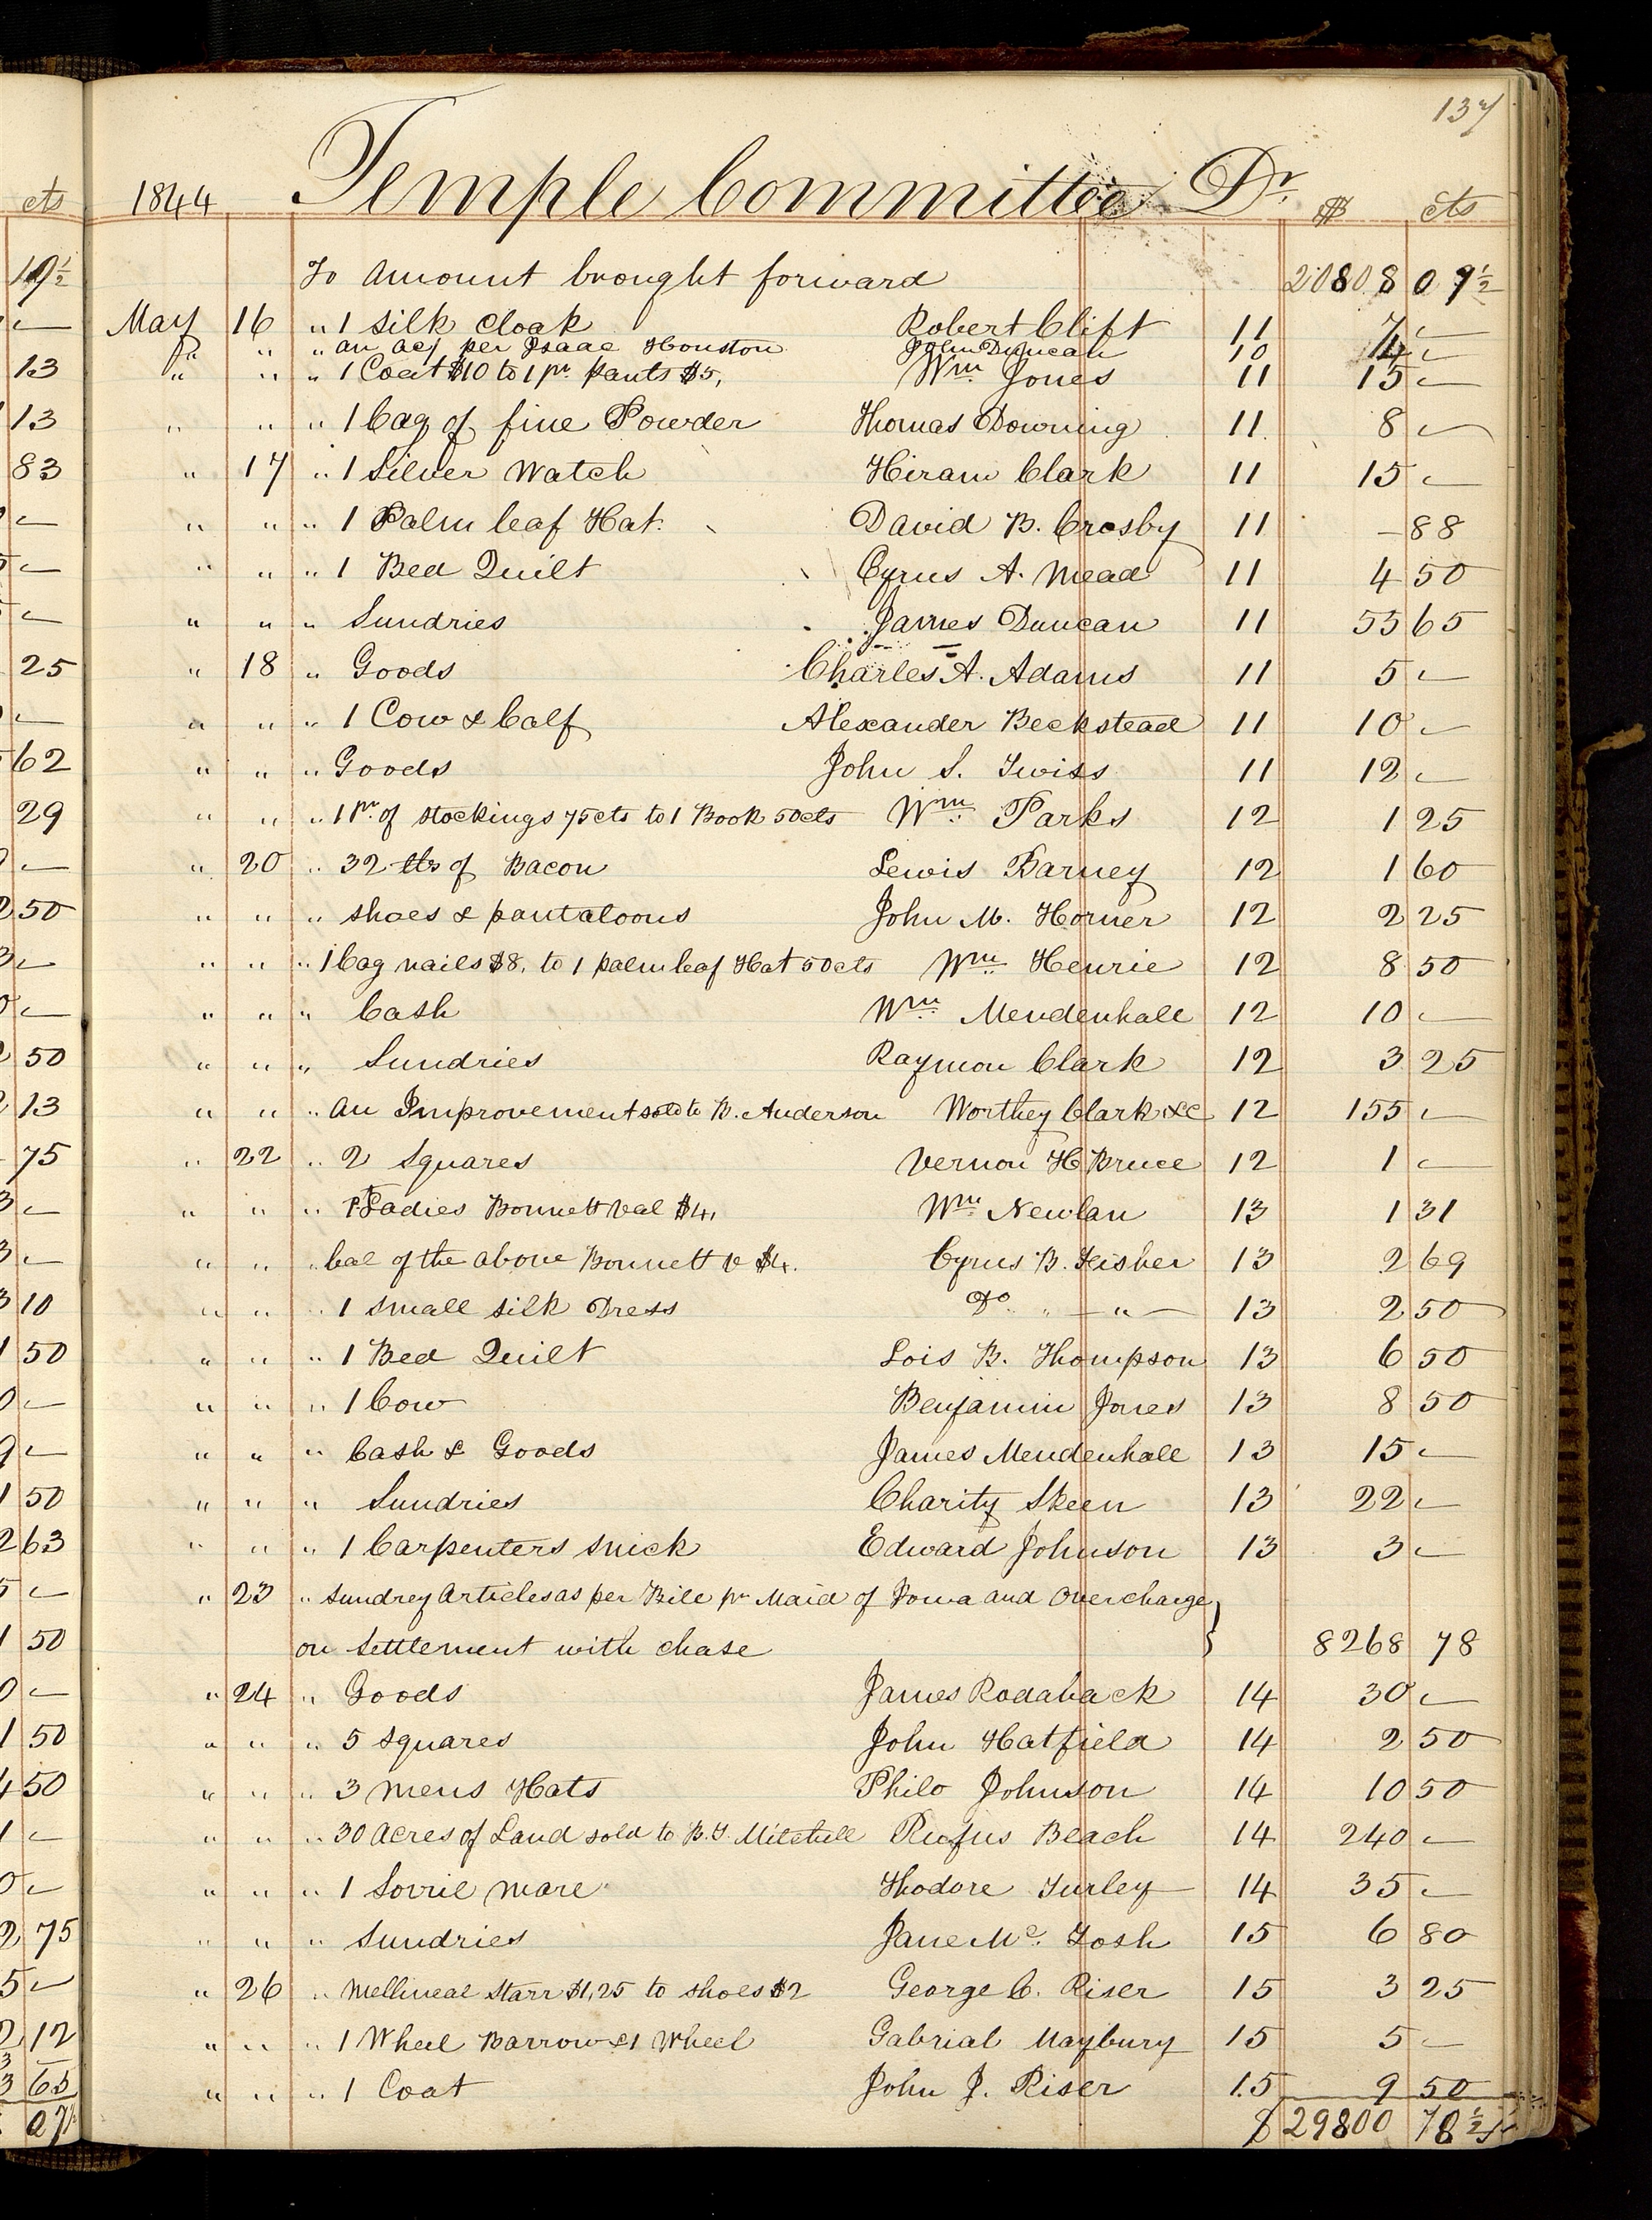 137
cts 1844 Temple Committee Dr. $ cts
To Amount brought forward 20808 07½
May 16 " 1 silk Cloak Robert Clift 11 7 —
" " " an acj per Isaac Houston John Duncan 10 14 —
" " " 1 Coat $10 to 1 pr. pants $5, Wm. Jones 11 15 —
13
" " " 1 Cag of fine Powder Thomas Downing 11 8 —
13
" 17 " 1 Silver Watch Hiram Clark 11 15 —
83
" " " 1 Palm leaf Hat. David B. Crosby 11 – 88
" " " 1 Bed Quilt Cyrus A. Mead 11 4 50
" " " Sundries James Duncan 11 55 65
" 18 " Goods Charles A. Adams 11 5 —
25
" " " 1 Cow & Calf Alexander Beckstead 11 10 —
" " " Goods John S. Twiss 11 12 —
62
" " " 1 Pr. of stockings 75cts to 1 Book 50cts Wm. Parks 12 1 25
29
" 20 " 32 lbs of Bacon Lewis Barney 12 1 60
" " " shoes & pantaloons John M. Horner 12 2 25
50
" " " 1 Cag nails $8, to 1 palm leaf Hat 50cts Wm. Henrie 12 8 50
" " " Cash Wm. Mendenhall 12 10 —
" " " Sundries Raymon Clark 12 3 25
50
" " " an Improvement sold to B. Anderson Worthey Clark &c 12 155 —
13
" 22 " 2 Squares Vernon H Bruce 12 1 —
75
" " " Pt Ladies Bonnett val $4, Wm. Newlan 13 1 31
" " " bal of the above Bonnett v $4. Cyrus B. Fisher 13 2 69
" " " 1 small silk Dress Do " — " — 13 2 50
10
" " " 1 Bed Quilt Lois B. Thompson 13 6 50
50
" " " 1 Cow Benjamin Jones 13 8 50
" " " Cash & Goods James Mendenhall 13 15 —
" " " Sundries Charity Skeen 13 22 —
50
" " " 1 Carpenters snick Edward Johnson 13 3 —
63
" 23 " Sundrey Articles as per Bill pr Maid of Iowa and Overcharge }
on Settlement with Chase 8268 78
50
" 24 " Goods James Rodaback 14 30 —
" " " 5 squares John Hatfield 14 2 50
50
" " " 3 mens Hats Philo Johnson 14 10 50
50
" " " 30 Acres of Land sold to B. T. Mitchell Rufus Beach 14 240 —
" " " 1 Sorrie mare Thodore Turley 14 35 —
" " " Sundries Jane Mc. Tosh 15 6 80
75
" 26 " Mellineal Starr $1,25 to shoes $2 George C. Riser 15 3 25
" " " 1 Wheel Barrow & 1 Wheel Gabrial Maybury 15 5 —
12
" " " 1 Coat John J. Riser 15 9 50
65
$ 29800 78½